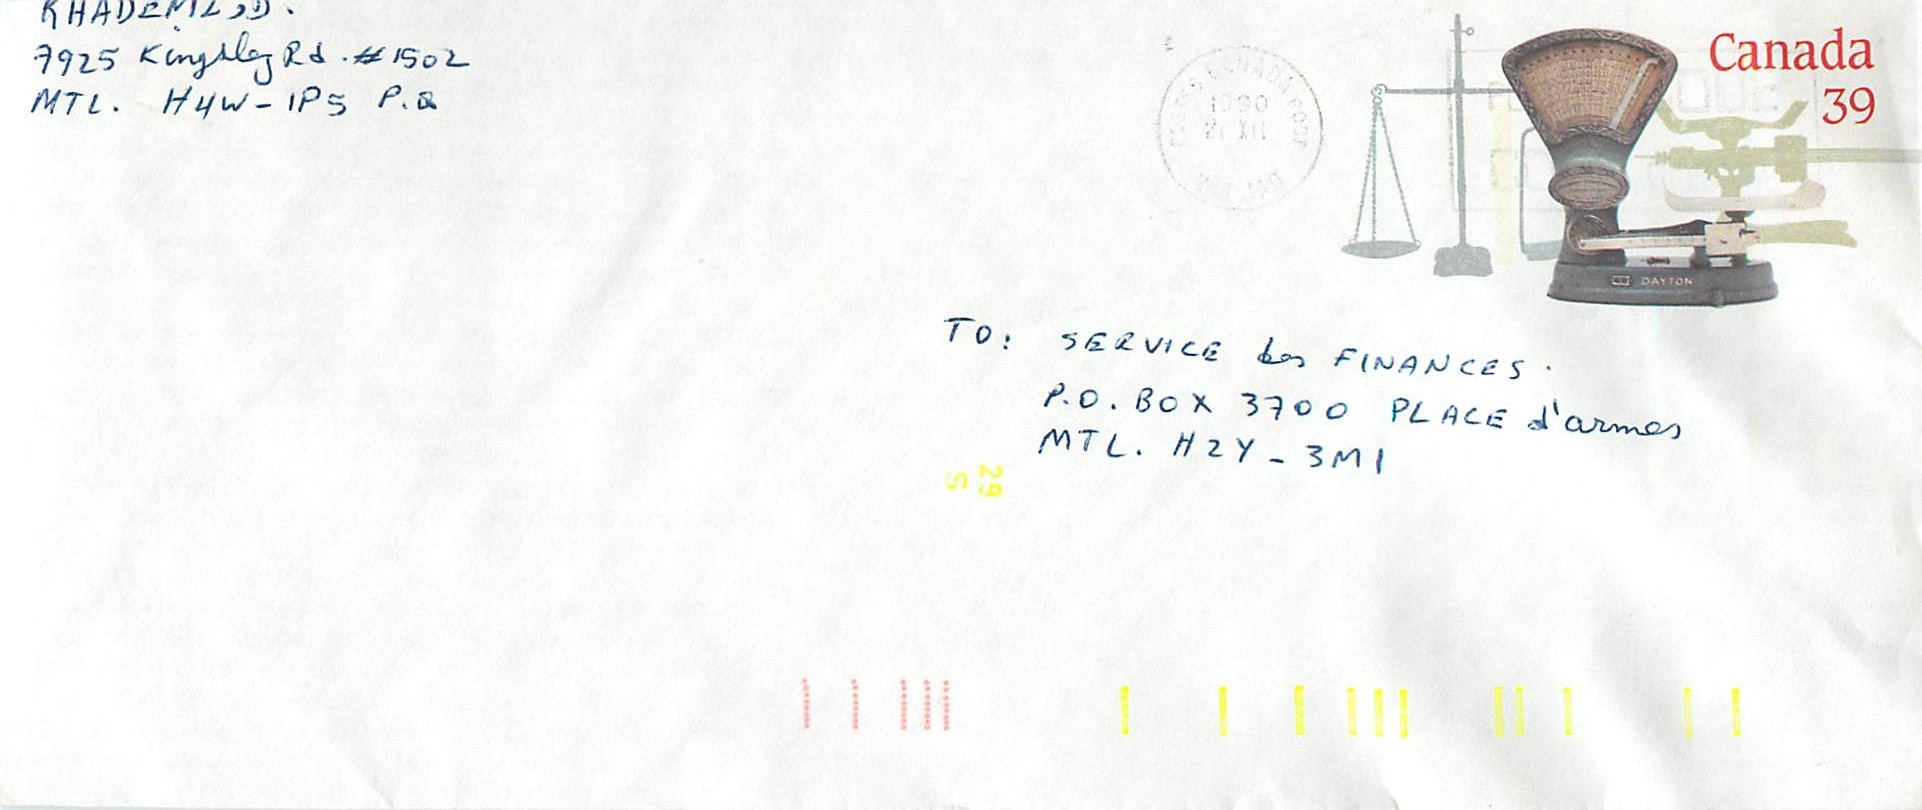 KHADEMI, D.
7925 Kingsley Rd. #1502
MTL. H4W-1P5 P.Q
Canada
39
CANADA POST
1990
21 XII
DAYTON
TO: SERVICE des FINANCES.
P.O. BOX 3700 PLACE d'armes
MTL. H2Y-3M1
29
S